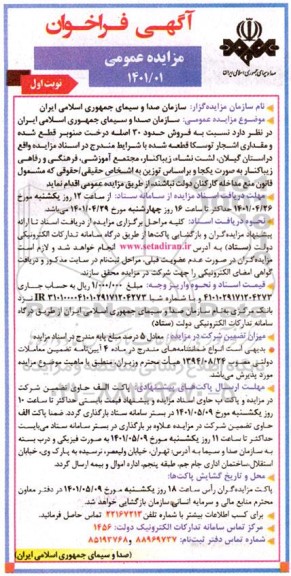 آگهی فراخوان
مزایده عمومی
۱۴۰۱/۰۱
نوبت اول
صدا و سیمای جمهوری اسلامی ایران
نام سازمان مزایده‌گزار: سازمان صدا و سیمای جمهوری اسلامی ایران
موضوع مزایده عمومی: سازمان صدا و سیمای جمهوری اسلامی ایران
در نظر دارد نسبت به فروش حدود ۳۰ اصله درخت صنوبر قطع شده
و مقداری اشجار توسکا قطعه شده با شرایط مندرج در اسناد مزایده واقع
در استان گیلان، لشت نشاء، زیباکنار، مجتمع آموزشی، فرهنگی و رفاهی
زیباکنار به صورت یکجا و براساس توزین به اشخاص حقیقی/حقوقی که مشمول
قانون منع مداخله کارکنان دولت نباشند، از طریق مزایده عمومی اقدام نماید
مهلت دریافت اسناد مزایده از سامانه ستاد: از ساعت ۱۲ روز یکشنبه مورخ
حداکثر تا ساعت ۱۶ روز چهارشنبه مورخ
نحوه دریافت اسناد: کلیه مراحل برگزاری مزایده از دریافت اسناد تا ارائه
پیشنهاد مزایده‌گران و بازگشایی پاکت‌ها از طریق درگاه سامانه تدارکات الکترونیکی
دولت (ستاد) به آدرس www.setadiran.ir انجام خواهد شد و لازم است
مزایده‌گران در صورت عدم عضویت قبلی، مراحل ثبت‌نام در سایت مذکور و دریافت
گواهی امضای الکترونیکی را جهت شرکت در مزایده محقق سازند.
قیمت اسناد و نحوه واریز وجه: مبلغ ۱/۰۰۰/۰۰۰ ریال به حساب جاری
و با شماره شبا
بانک مرکزی به نام سازمان صدا و سیمای جمهوری اسلامی ایران از طریق درگاه
سامانه تدارکات الکترونیکی دولت (ستاد)
میزان تضمین شرکت در مزایده: معادل ۵ درصد مبلغ پایه مندرج در اسناد مزایده
بدیهی است انواع ضمانتنامه‌های مندرج در ماده ۴ آیین‌نامه تضمین معاملات
دولتی مصوب ۱۳۹۴/۰۸/۲۴ هیأت محترم وزیران، منطبق با ماهیت موضوع مزایده
مورد پذیرش می‌باشد.
مهلت ارسال پاکت‌های پیشنهادی: پاکت الف حاوی تضمین شرکت
در مزایده و پاکت ب حاوی اسناد مزایده و پیشنهاد قیمت بایستی حداکثر تا ساعت ۱۰
روز یکشنبه مورخ ۱۴۰۱/۰۵/۰۹ در بستر سامانه ستاد بارگذاری گردد. ضمنا پاکت الف
حاوی تضمین شرکت در مزایده علاوه بر بارگذاری در بستر سامانه ستاد می‌بایست
حداکثر تا ساعت ۱۱ روز یکشنبه مورخ ۱۴۰۱/۰۵/۰۹ به صورت فیزیکی و درب بسته
به سازمان صدا و سیما به آدرس: تهران، خیابان ولیعصر، نرسیده به پارک وی، خیابان
استقلال، ساختمان اداری جام جم، طبقه پنجم، اداره اموال و بیمه ارسال گردد.
محل و تاریخ گشایش پاکت‌ها:
پاکت مزایده‌گران رأس ساعت ۱۸ روز یکشنبه مورخ ۱۴۰۱/۰۵/۰۹ در دفتر معاون
محترم منابع مالی و سرمایه انسانی سازمان بازگشایی خواهد شد.
برای کسب اطلاعات بیشتر با شماره تلفن ۲۲۱۶۷۲۱۳ تماس حاصل فرمائید.
مرکز تماس سامانه تدارکات الکترونیک دولت: ۱۴۵۶
شماره تماس دفتر ثبت‌نام: ۸۸۹۶۹۷۳۷ و ۸۵۱۹۳۷۶۸
(صدا و سیمای جمهوری اسلامی ایران)